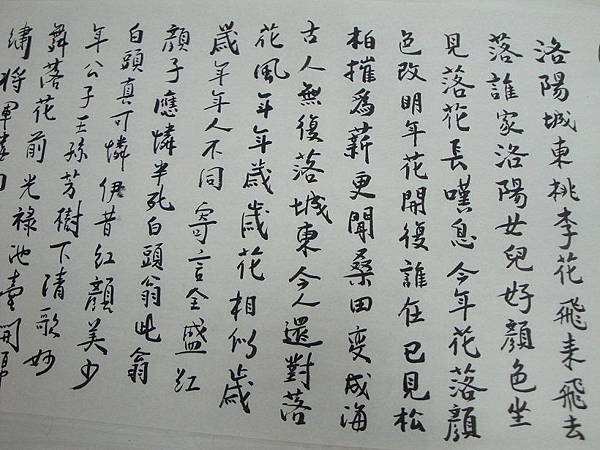 洛陽城東桃李花飛来飛去
落誰家洛陽女兒好顏色坐
見落花長嘆息今年花落顏
色改明年花開復誰在已見松
柏摧為薪更聞桑田變成海
古人無復落城東今人還對落
花風年年歲歲花相似歲
歲年年人不同寄言全盛紅
顏子應憐半死白頭翁此翁
白頭真可憐伊昔紅顏美少
年公子王孫芳樹下清歌妙
舞落花前光祿池臺開錦
繡將軍樓